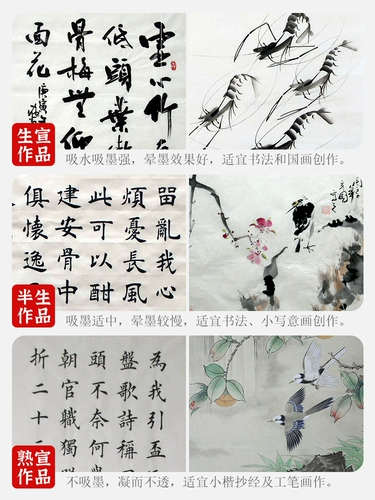 虛心竹有
低頭葉
骨梅無仰
面花
生宣
作品
吸水吸墨强，晕墨效果好，适宜书法和国画创作。
留亂我心
煩憂長風
此可以酣
建安骨中
俱懷逸
半生
作品
吸墨适中，晕墨较慢，适宜书法、小写意画创作。
為我引盃
盤歌詩稱國
頭不奈何
朝官職獨
折二十
熟宣
作品
不吸墨，凝而不透，适宜小楷抄经及工笔画创作。